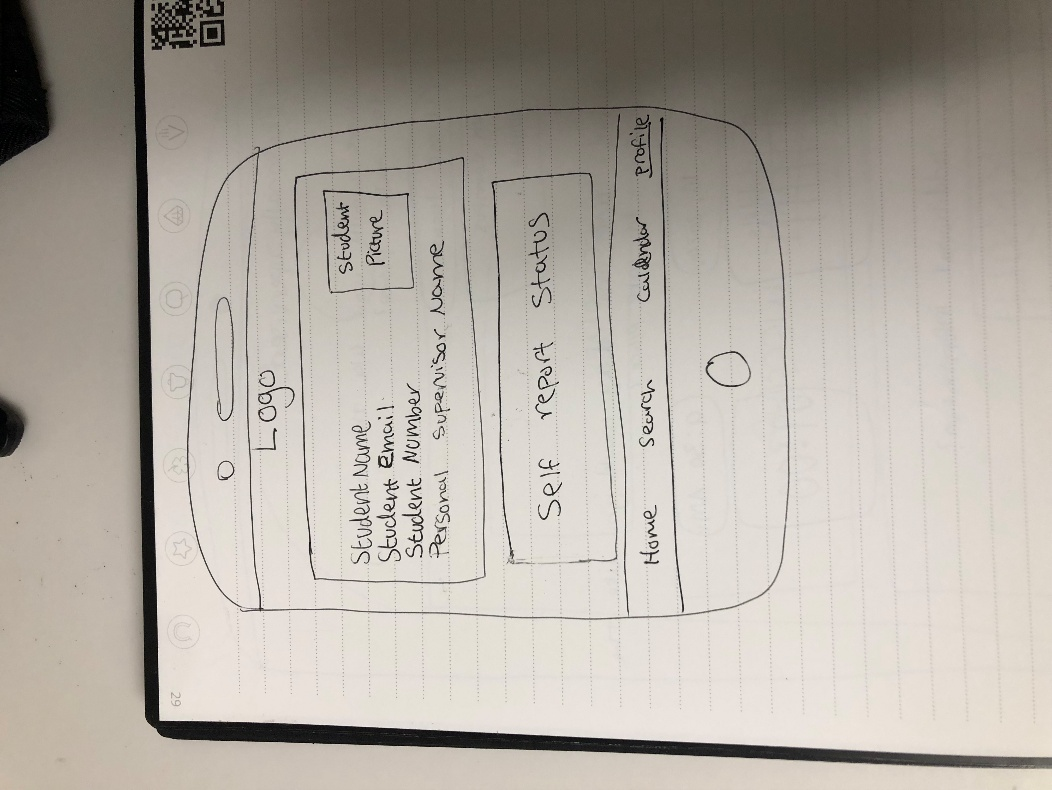 Logo
Student Name
Student Email
Student Number
Personal Supervisor Name
Student
Picture
Self report Status
Home Search Calendar profile
29